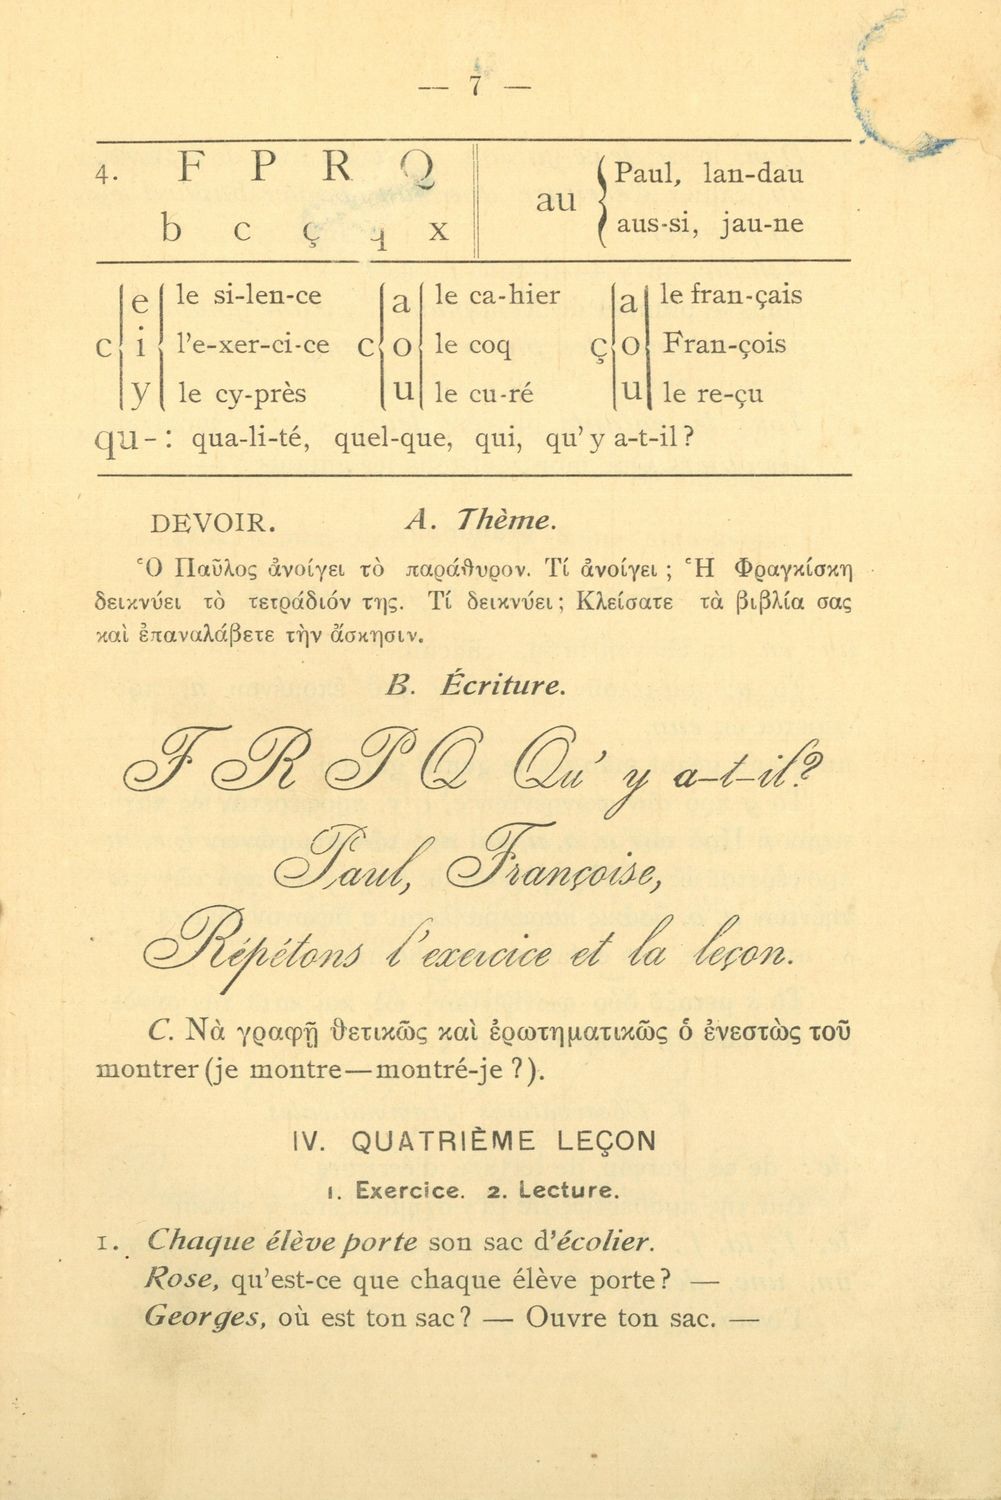 — 7 —
4. F P R Q
b c ç q x
au
Paul, lan-dau
aus-si, jau-ne
e le si-len-ce a le ca-hier a le fran-çais
c i l'e-xer-ci-ce c o le coq ç o Fran-çois
y le cy-près u le cu-ré u le re-çu
qu- : qua-li-té, quel-que, qui, qu' y a-t-il ?
DEVOIR. A. Thème.
Ὁ Παῦλος ἀνοίγει τὸ παράθυρον. Τί ἀνοίγει ; Ἡ Φραγκίσκη
δεικνύει τὸ τετράδιόν της. Τί δεικνύει ; Κλείσατε τὰ βιβλία σας
καὶ ἐπαναλάβετε τὴν ἄσκησιν.
B. Écriture.
F R P Q Qu' y a-t-il ?
Paul, Françoise,
Répétons l'exercice et la leçon.
C. Νὰ γραφῇ θετικῶς καὶ ἐρωτηματικῶς ὁ ἐνεστὼς τοῦ
montrer (je montre—montré-je ?).
IV. QUATRIÈME LEÇON
1. Exercice. 2. Lecture.
1. Chaque élève porte son sac d'écolier.
Rose, qu'est-ce que chaque élève porte ? —
Georges, où est ton sac ? — Ouvre ton sac. —